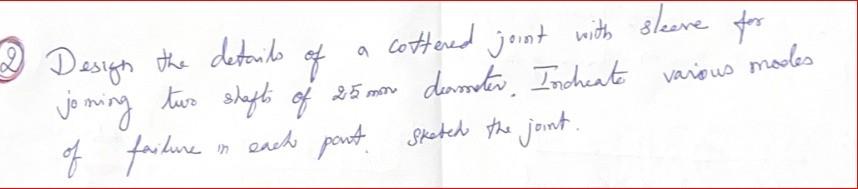 2 Design the details of a cottered joint with sleeve for
joining two shafts of 25 mm diameter. Indicate various modes
of failure in each part. Sketch the joint.